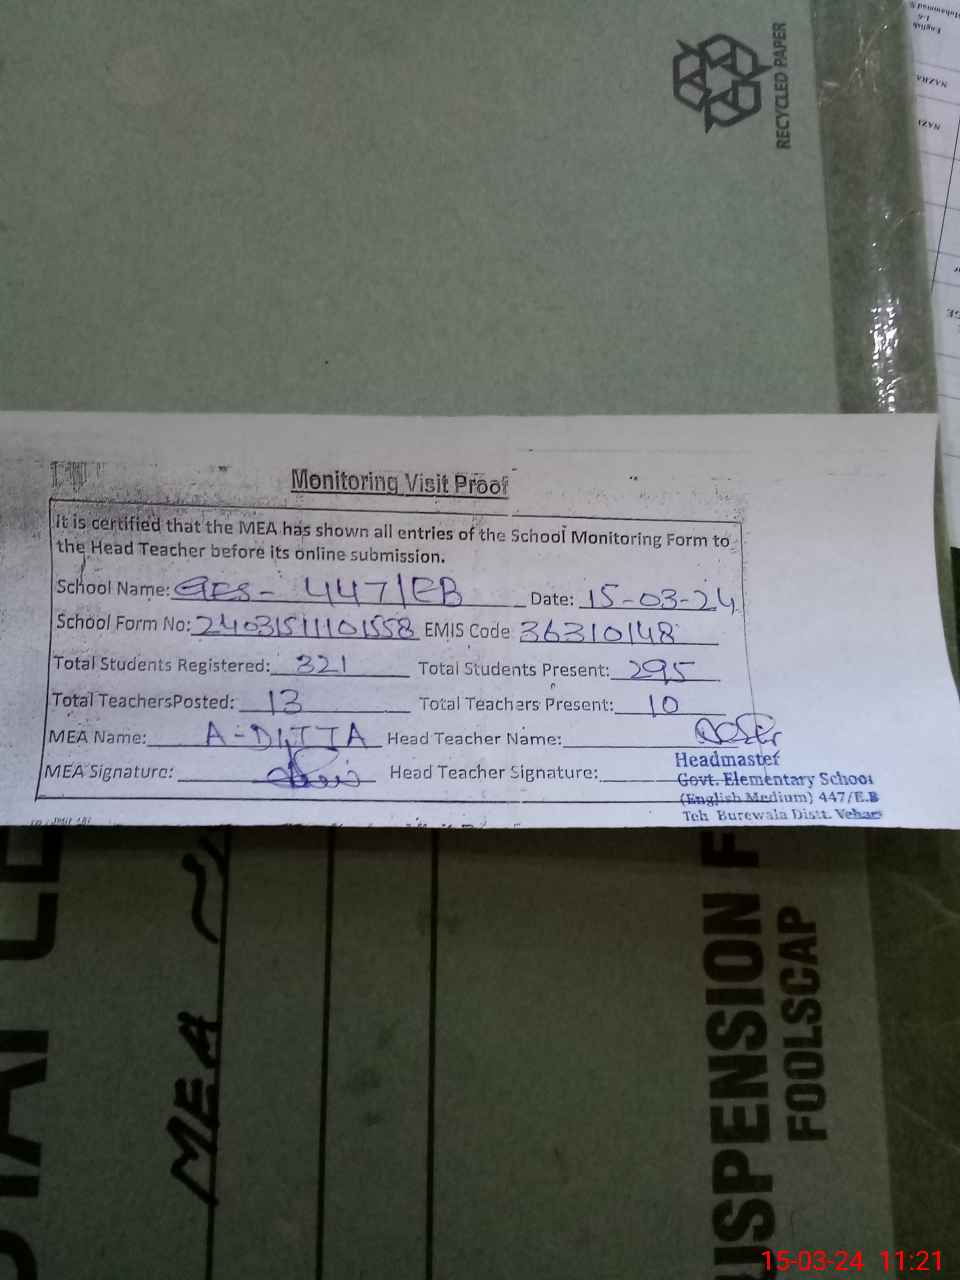 RECYCLED PAPER
Monitoring Visit Proof
It is certified that the MEA has shown all entries of the School Monitoring Form to
the Head Teacher before its online submission.
School Name: GES - 447/EB Date: 15-03-24
School Form No: 24031511101558 EMIS Code 36310148
Total Students Registered: 321 Total Students Present: 295
Total TeachersPosted: 13 Total Teachers Present: 10
MEA Name: A-DITTA Head Teacher Name:
MEA Signature: Head Teacher Signature:
Headmaster
Govt. Elementary School
(English Medium) 447/E.B
Teh Burewala Distt. Vehari
MEA
FOOLSCAP
15-03-24 11:21